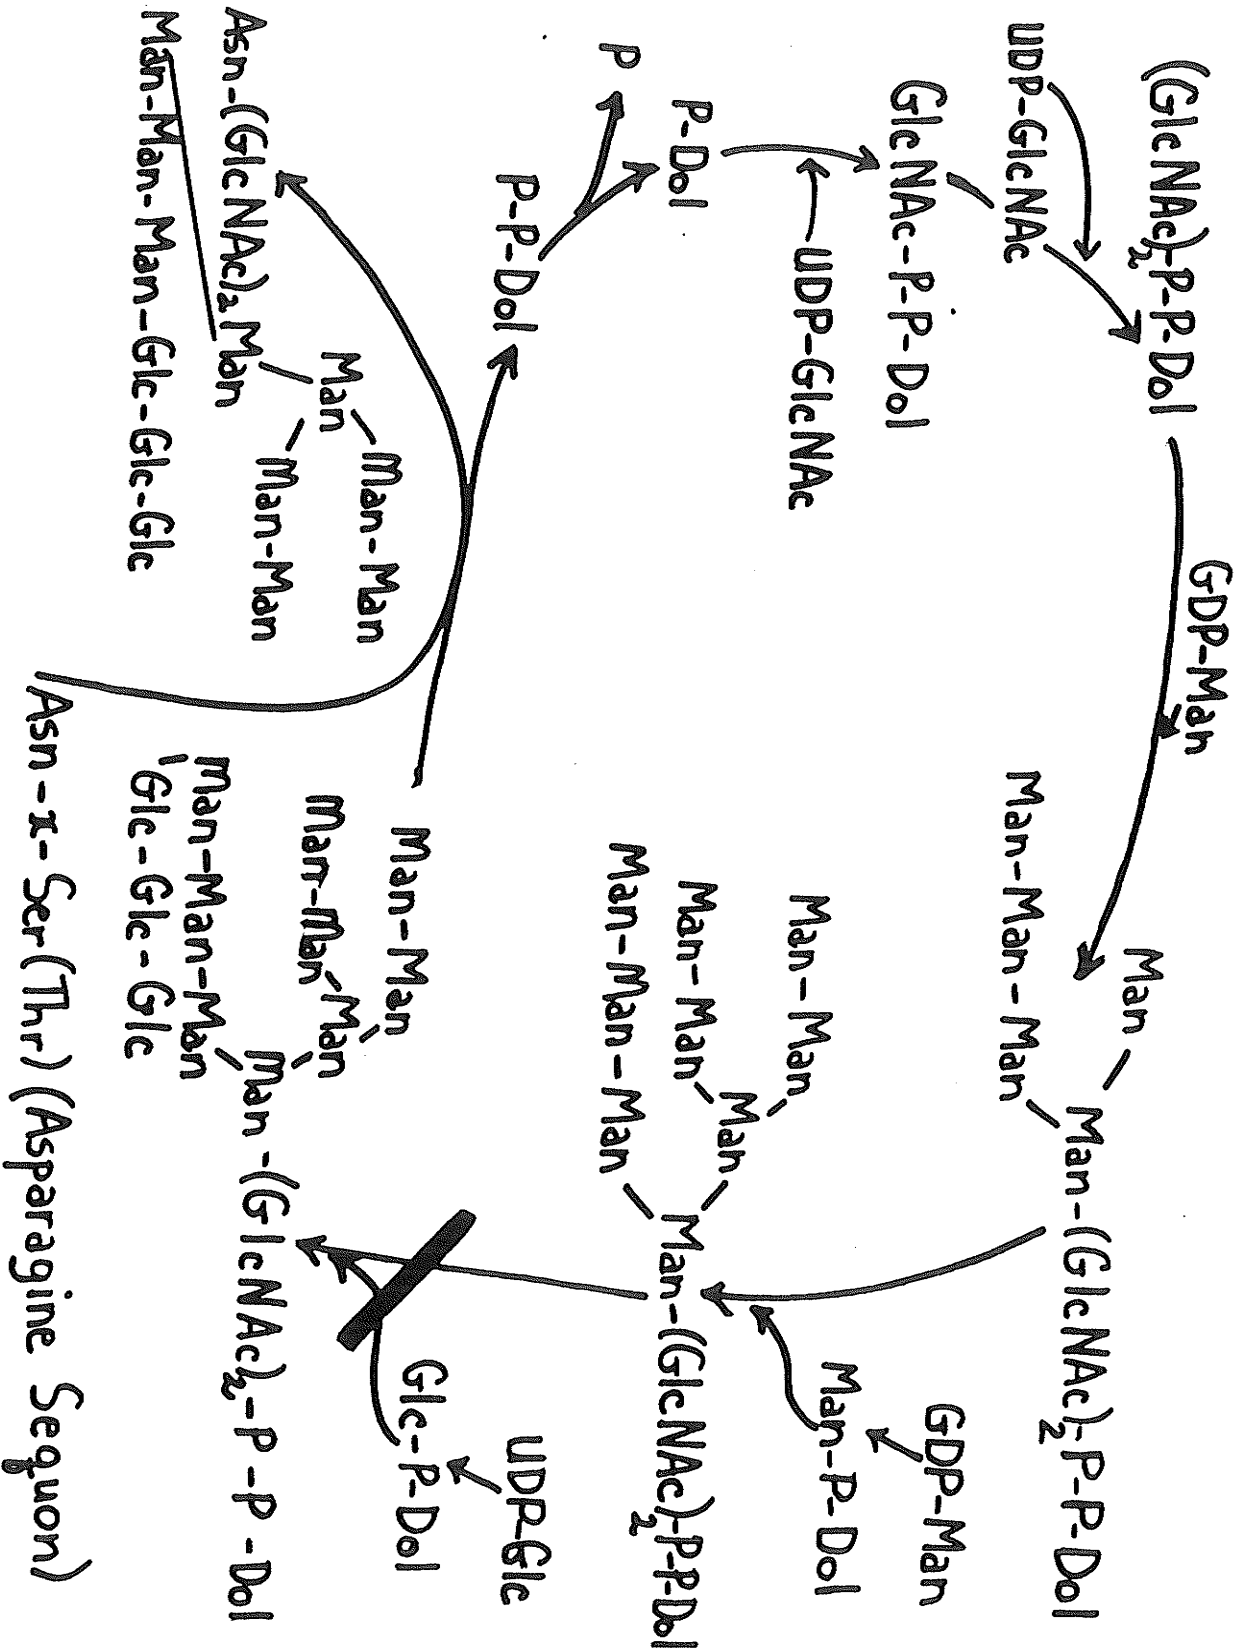 (GlcNAc)2-P-P-Dol
GDP-Man
UDP-GlcNAc
GlcNAc-P-P-Dol
UDP-GlcNAc
P-Dol
P
P-P-Dol
Man
Man-Man-Man
Man-(GlcNAc)2-P-P-Dol
GDP-Man
Man-P-Dol
Man-Man
Man-Man
Man
Man-Man-Man
Man-(GlcNAc)2-P-P-Dol
UDP-Glc
Glc-P-Dol
Man-Man
Man-Man
Man
Man-Man-Man
Glc-Glc-Glc
Man-(GlcNAc)2-P-P-Dol
Man-Man
Man
Man-Man
Asn-(GlcNAc)2Man
Man-Man-Man-Glc-Glc-Glc
Asn-x-Ser(Thr)(Asparagine Sequon)